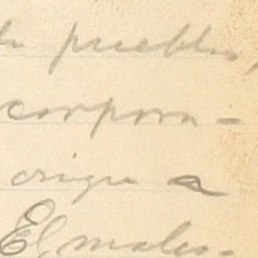 pueblo,
corpora-
origen a
El males-